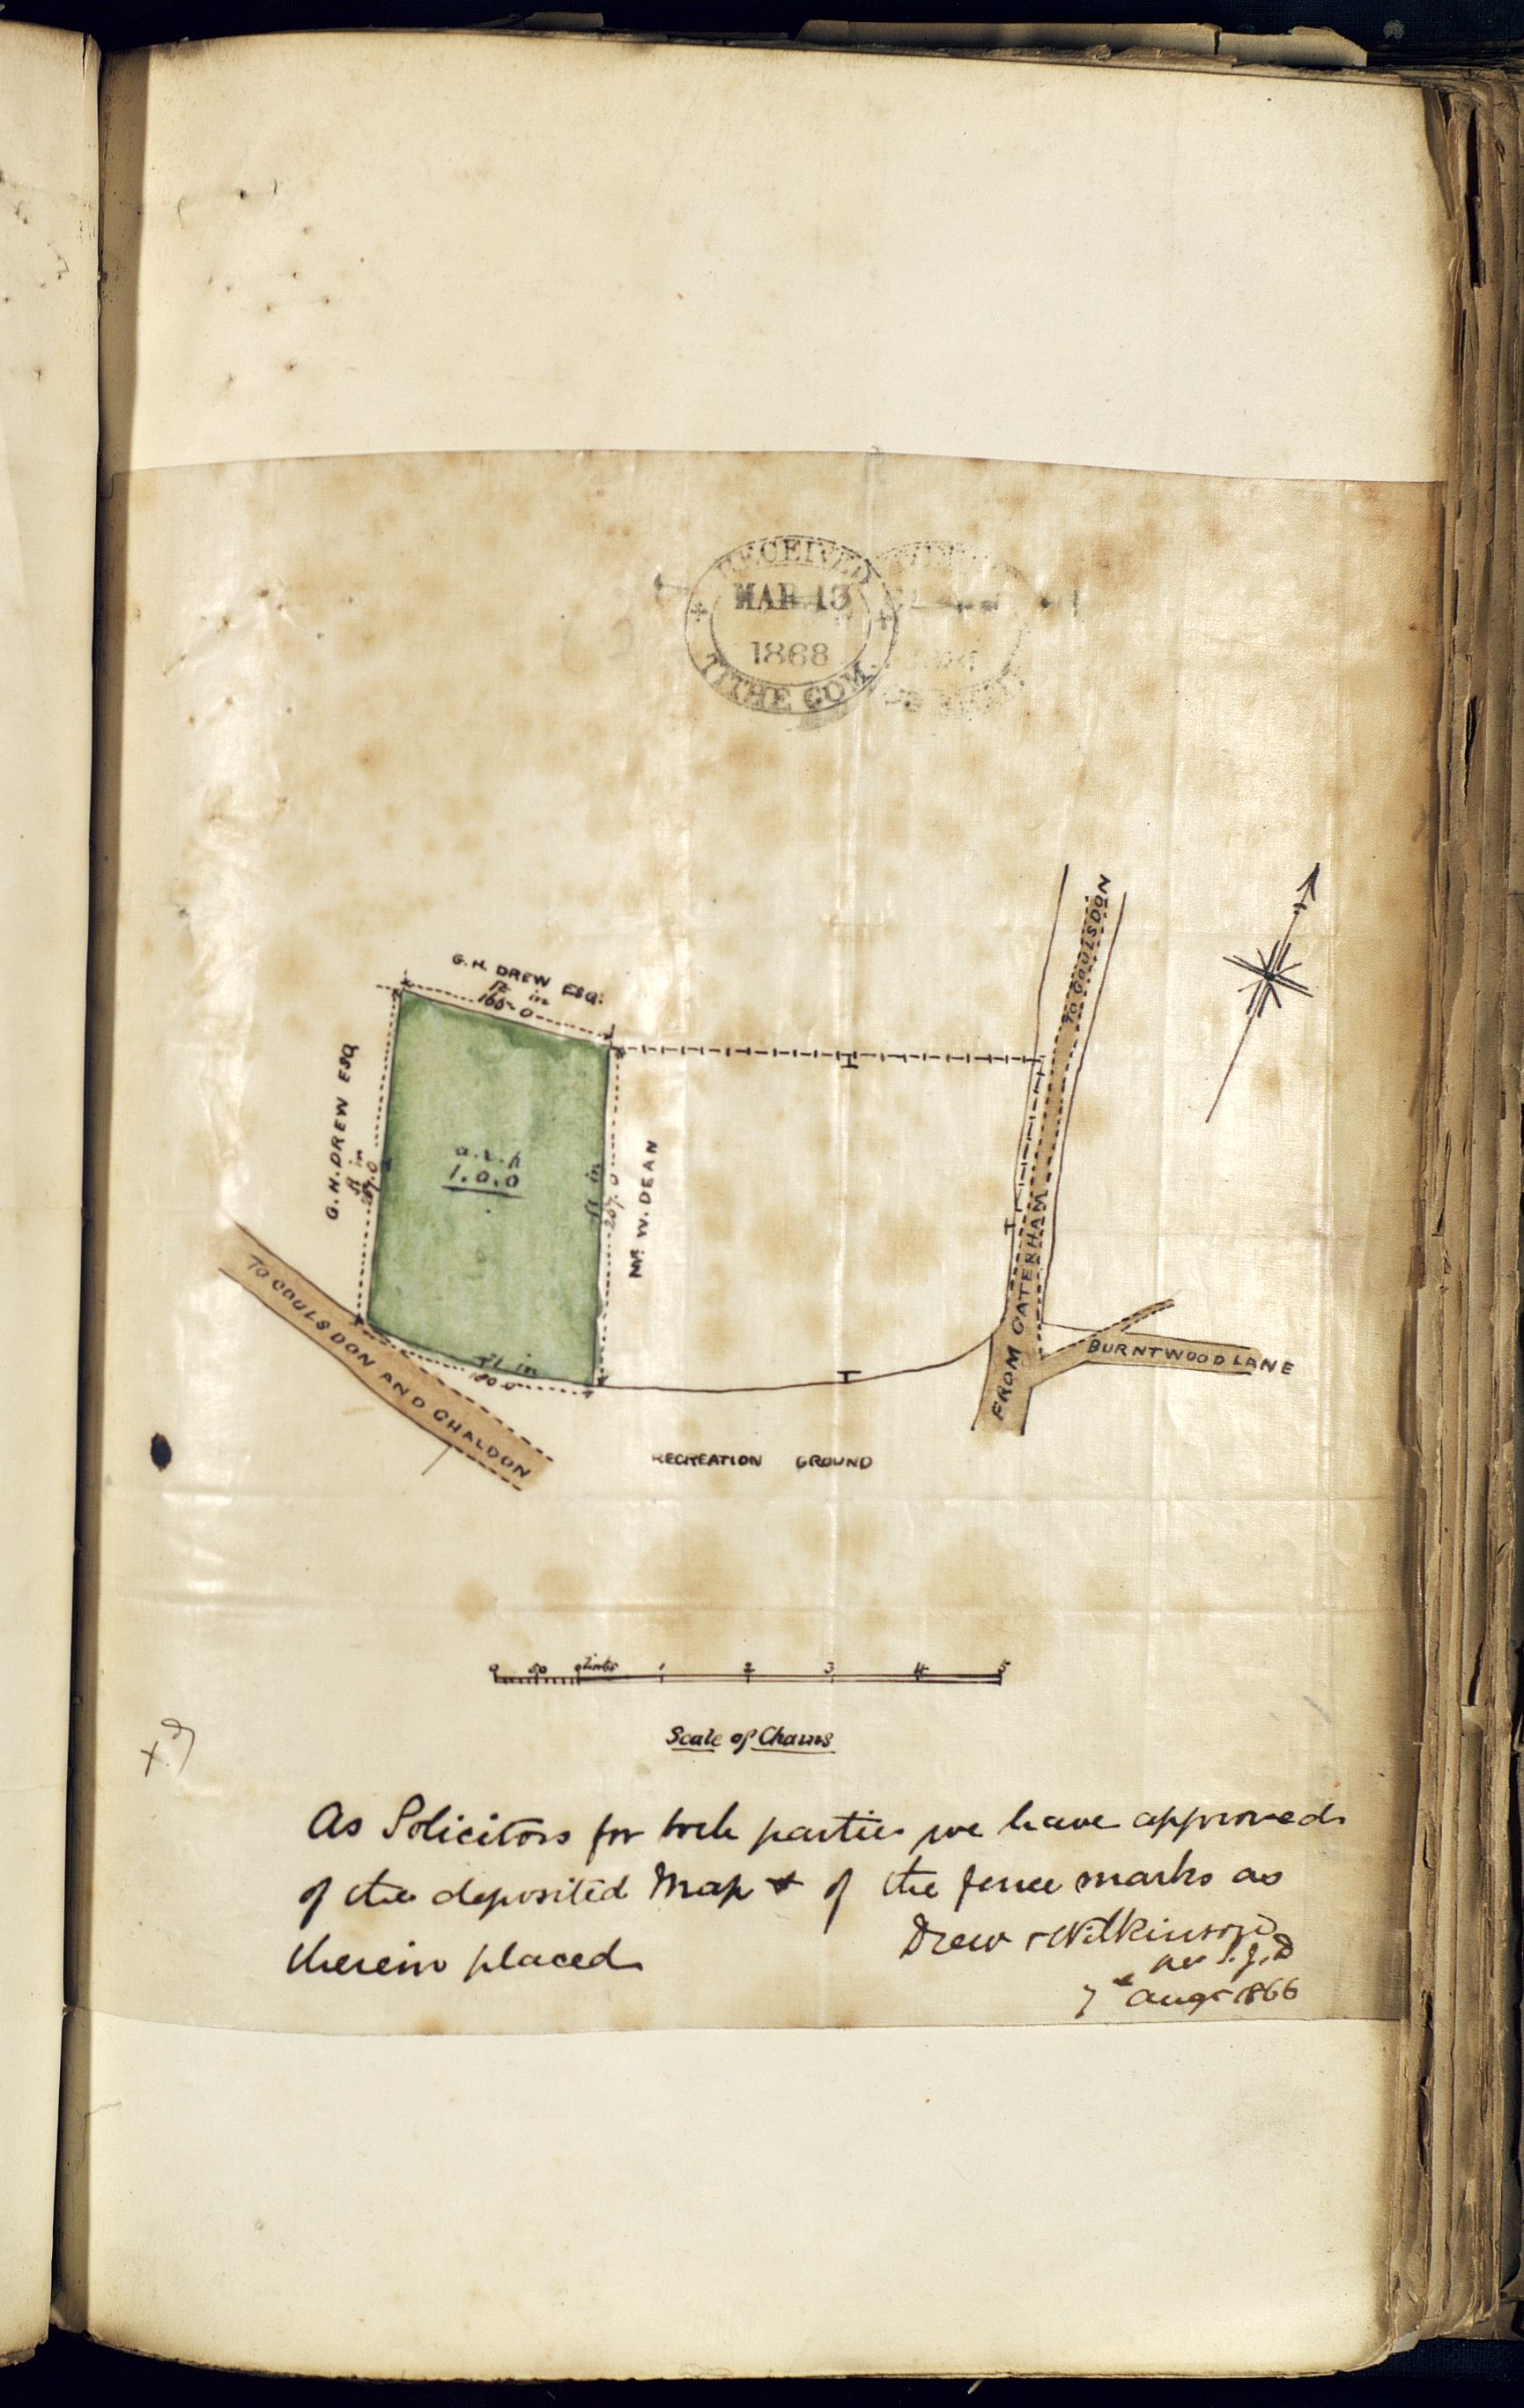 RECEIVED
MAR. 13
1868
TITHE COM.
TO COULSDON
G. H. DREW ESQ:
ft in
166-0
G. H. DREW ESQ
ft in
a. r. p
1. 0. 0
ft in
267. 0
Mr. W. DEAN
FROM CATERHAM
TO COULSDON AND CHALDON
ft in
180 0
BURNTWOOD LANE
RECREATION GROUND
0 50 links 1 2 3 4 5
Scale of Chains
As Solicitors for both parties we have approved
of the deposited Map & of the fence marks as
therein placed
Drew & Wilkinson
7th Augt 1866